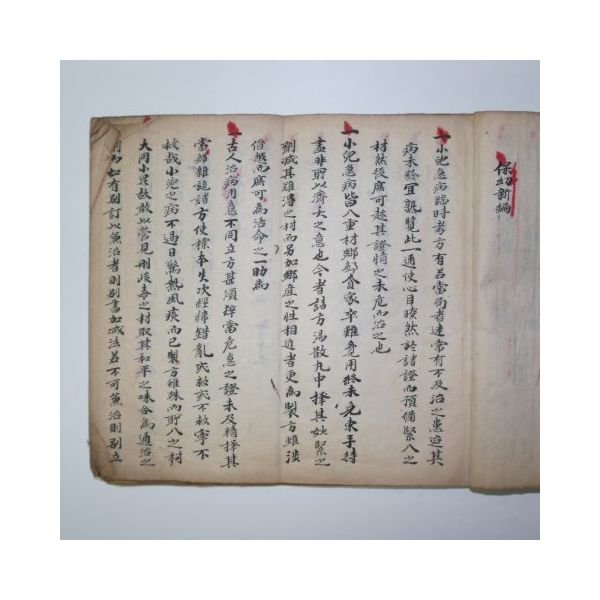 保幼新編
一小兒急病臨時考方有若當局者迷常有不及治之患迨其
病未終宜熟覽此一通使心目瞭然於諸證而預備緊入之
材然後庶可趁其證情之未危而治之也
一小兒急病皆入重材鄉部貧家卒難覓用終未免束手待
盡非所以濟夭之意也今者諸方湯散丸中擇其妙緊之
劑減其難得之材而另加鄉産之性相近者更為製方雖涉
僭越而庶可為活命之一助焉
一古人治病用急不同立方甚煩猝當危急之證未及精擇其
當邦雜試諸方使標本失次經緯錯亂或救或不救寧不
赦哉小兒之病不過日驚熱風痰而已製方雖殊而所入之材
大同小異故敢以常見刪峻毒之材取其和平之味合為通治之
劑而如有別訂以兼治者則別書加減法若不可兼治則別立